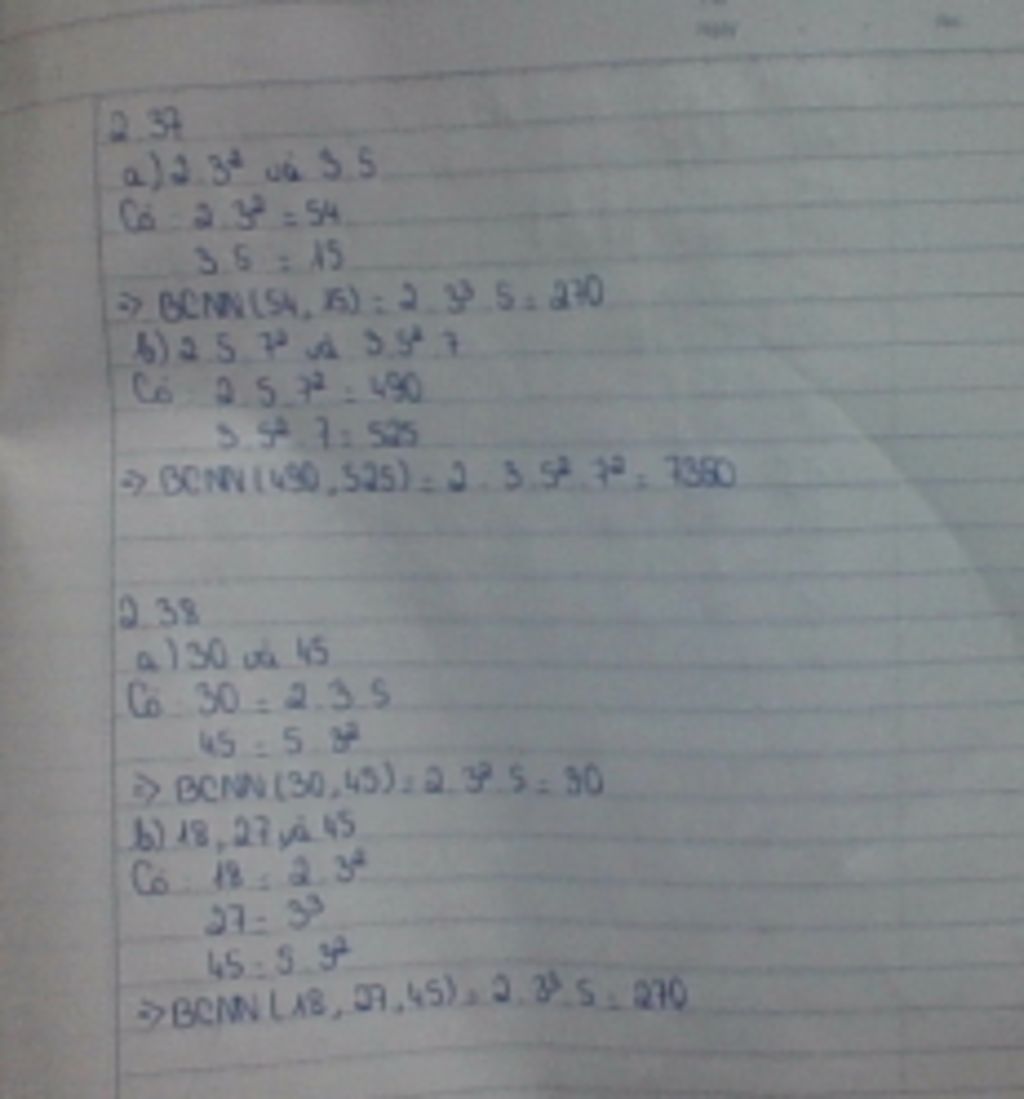 2.37
a) 2.3² và 3.5
Có: 2.3² = 54
3.5 = 15
=> BCNN(54, 15) = 2.3³.5 = 270
b) 2.5.7² và 3.5².7
Có: 2.5.7² = 490
3.5².7 = 525
=> BCNN(490, 525) = 2.3.5².7² = 7350
2.38
a) 30 và 45
Có: 30 = 2.3.5
45 = 5.3²
=> BCNN(30, 45) = 2.3².5 = 90
b) 18, 27 và 45
Có: 18 = 2.3²
27 = 3³
45 = 5.3²
=> BCNN(18, 27, 45) = 2.3³.5 = 270